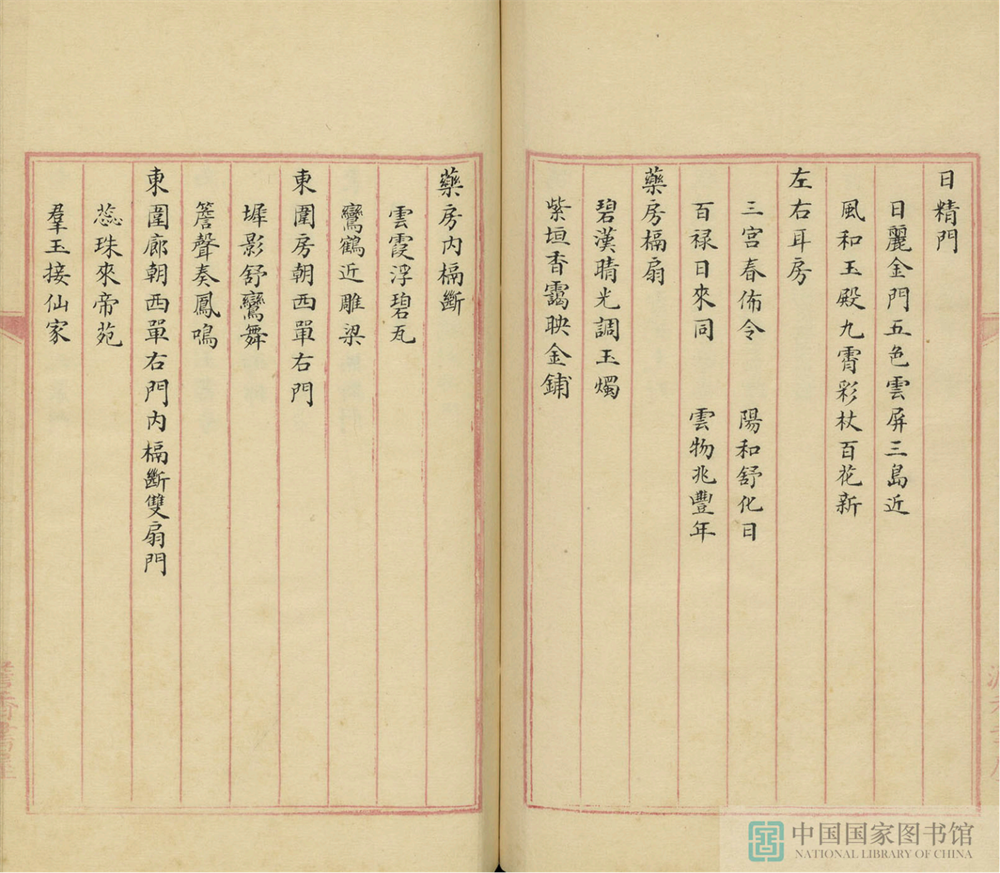 日精門
日麗金門五色雲屏三島近
風和玉殿九霄彩杖百花新
左右耳房
三宮春佈令　陽和舒化日
百禄日來同　雲物兆豐年
藥房槅扇
碧漢晴光調玉燭
紫垣香靄映金鋪
藥房內槅斷
雲霞浮碧瓦
鸞鶴近雕梁
東圍房朝西單右門
墀影舒鸞舞
簷聲奏鳳鳴
東圍廊朝西單右門內槅斷雙扇門
蕊珠來帝苑
羣玉接仙家
中国国家图书馆
NATIONAL LIBRARY OF CHINA